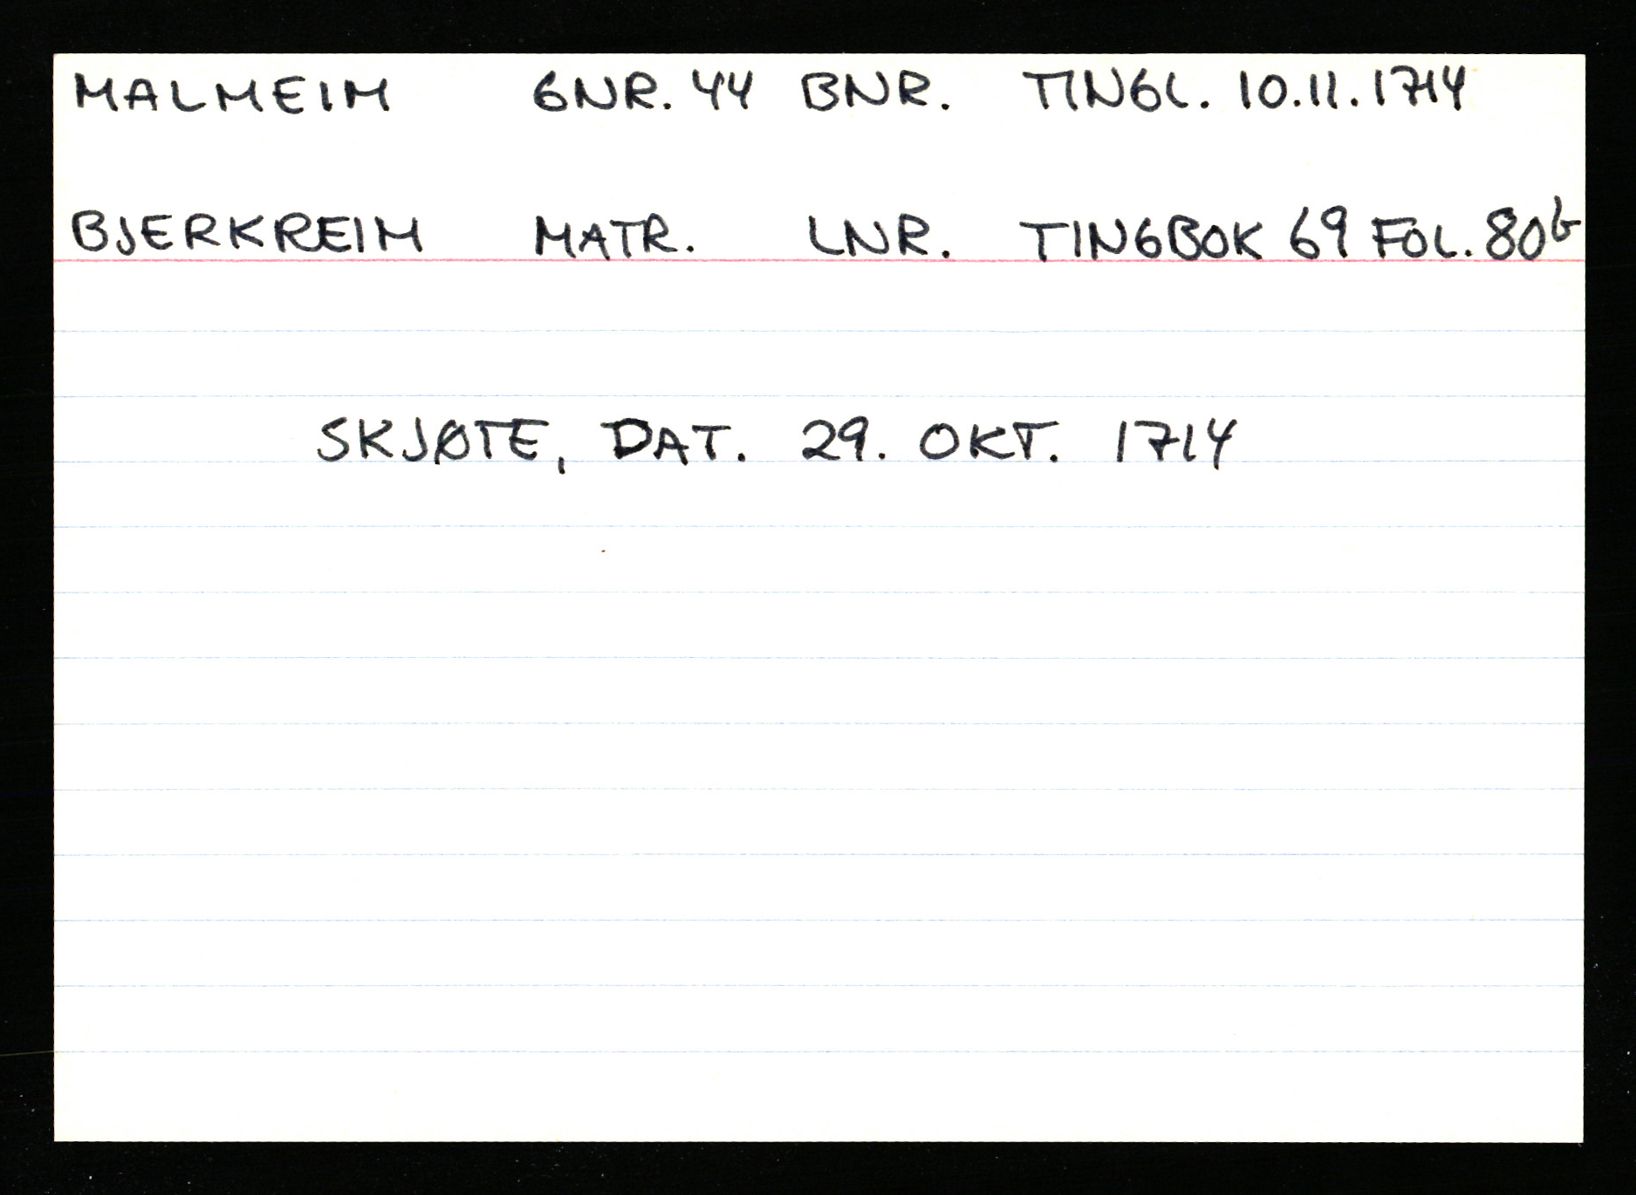 MALMEIM GNR. 44 BNR. TINGL. 10.11.1714
BJERKREIM MATR. LNR. TINGBOK 69 FOL. 80b
SKJØTE, DAT. 29. OKT. 1714